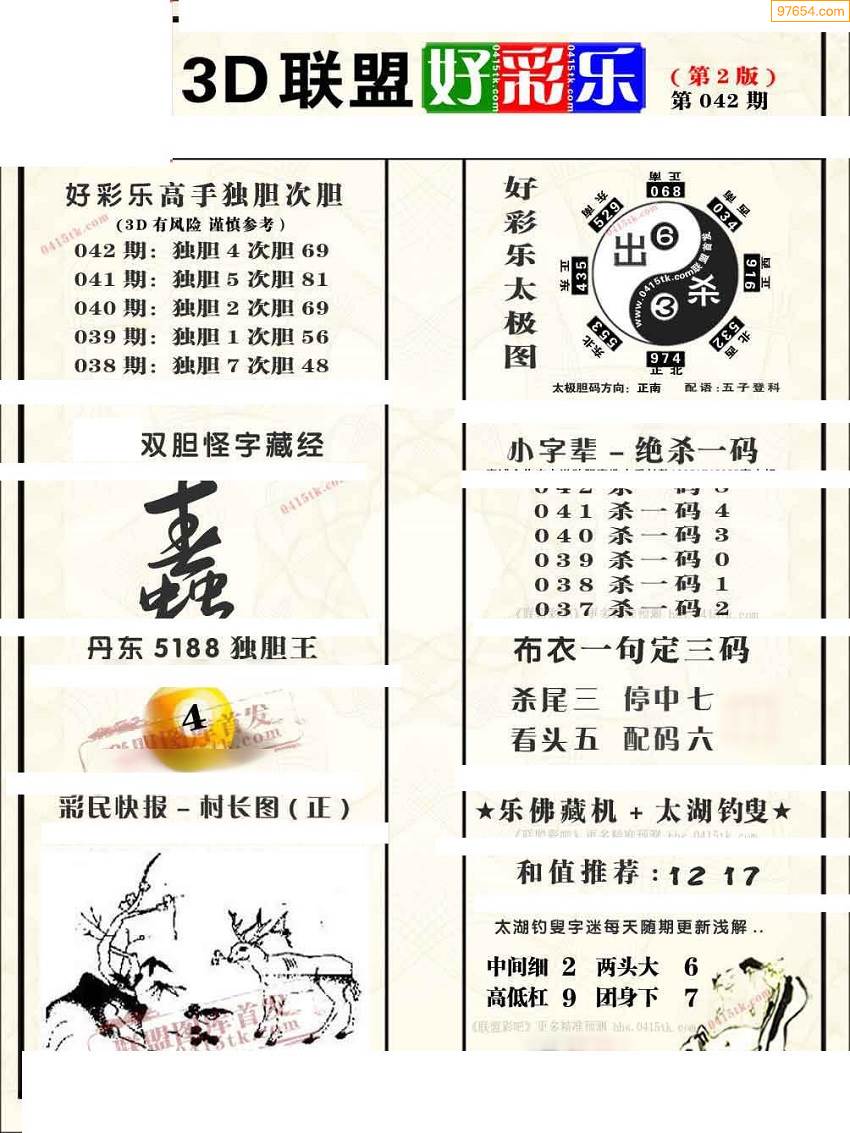 97654.com
3D联盟 好彩乐
(第2版)
第042期
好彩乐高手独胆次胆
(3D有风险 谨慎参考)
042期: 独胆4次胆69
041期: 独胆5次胆81
040期: 独胆2次胆69
039期: 独胆1次胆56
038期: 独胆7次胆48
0415tk.com
好彩乐太极图
正南 068
西南 034
正西 916
西北 532
正北 974
东北 553
正东 435
东南 529
出 6
杀 3
www.0415tk.com联盟首发
太极胆码方向: 正南 配语: 五子登科
双胆怪字藏经
0415tk.com
小字辈-绝杀一码
041杀一码4
040杀一码3
039杀一码0
038杀一码1
037杀一码2
《联盟彩吧》更多精准预测 bbs.0415tk.com
丹东5188独胆王
4
布衣一句定三码
杀尾三 停中七
看头五 配码六
彩民快报-村长图(正)
★乐佛藏机+太湖钓叟★
和值推荐:12 17
太湖钓叟字迷每天随期更新浅解..
中间细 2 两头大 6
高低杠 9 团身下 7
《联盟彩吧》更多精准预测 bbs.0415tk.com
0415tk.com
联盟图库首发
0415tk.com